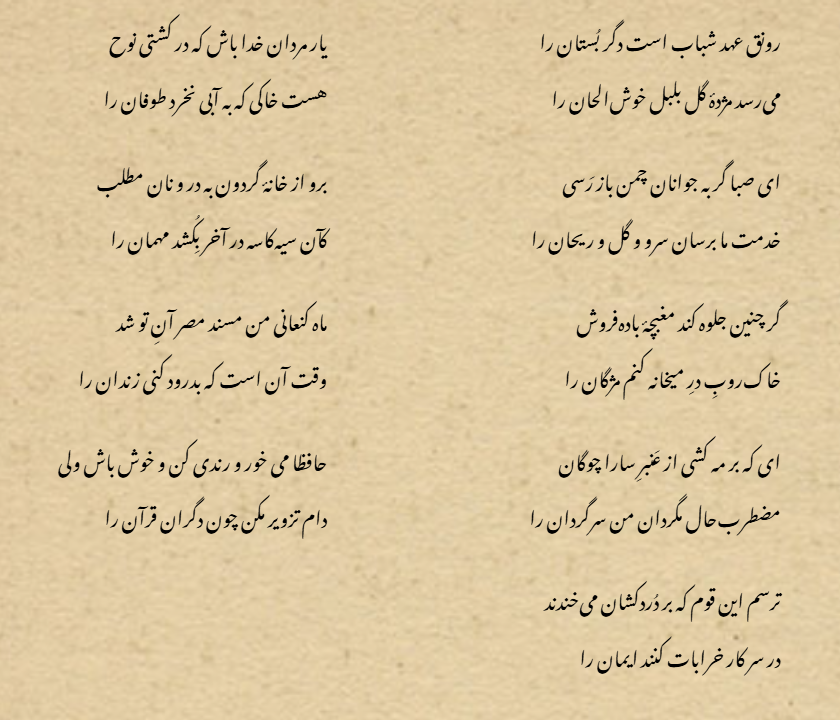 رونق عهد شباب است دگر بُستان را
می‌رسد مژدهٔ گل بلبل خوش‌الحان را
ای صبا گر به جوانان چمن باز رَسی
خدمت ما برسان سرو و گل و ریحان را
گر چنین جلوه کند مغبچهٔ باده‌فروش
خاک‌روبِ درِ میخانه کنم مژگان را
ای که بر مه کشی از عَنبرِ سارا چوگان
مضطرب‌حال مگردان من سرگردان را
ترسم این قوم که بر دُردکشان می‌خندند
در سر کار خرابات کنند ایمان را
یار مردان خدا باش که در کشتی نوح
هست خاکی که به آبی نخرد طوفان را
برو از خانهٔ گردون به در و نان مطلب
کآن سیه‌کاسه در آخر بِکُشد مهمان را
ماه کنعانی من مسند مصر آنِ تو شد
وقت آن است که بدرود کنی زندان را
حافظا می خور و رندی کن و خوش باش ولی
دام تزویر مکن چون دگران قرآن را